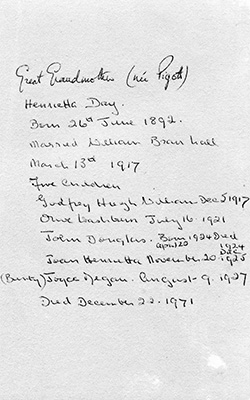 Great Grandmother (née Pigott)
Henrietta Day.
Born 26th June 1892.
Married William Bran hall
March 13th 1917
Five Children
Godfrey Hugh William Dec 5 1917
Olive July 16. 1921
John Douglas. Born 1924 Died
April 22 1924
Dec
Joan Henrietta November. 20. 1925
(Bunty) Joyce Megan. August. 9. 1927
Died December 22. 1971